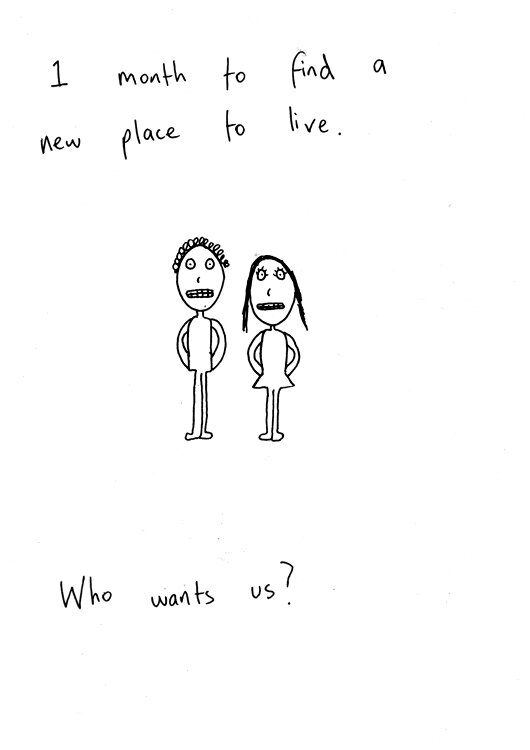 1 month to find a
new place to live.
Who wants us?